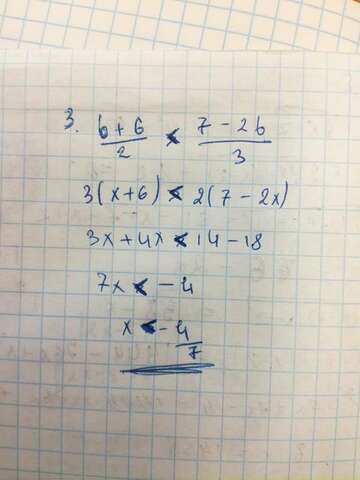 3. b+6/2 < 7-2b/3
3(x+6) < 2(7-2x)
3x+4x < 14-18
7x < -4
x < -4/7